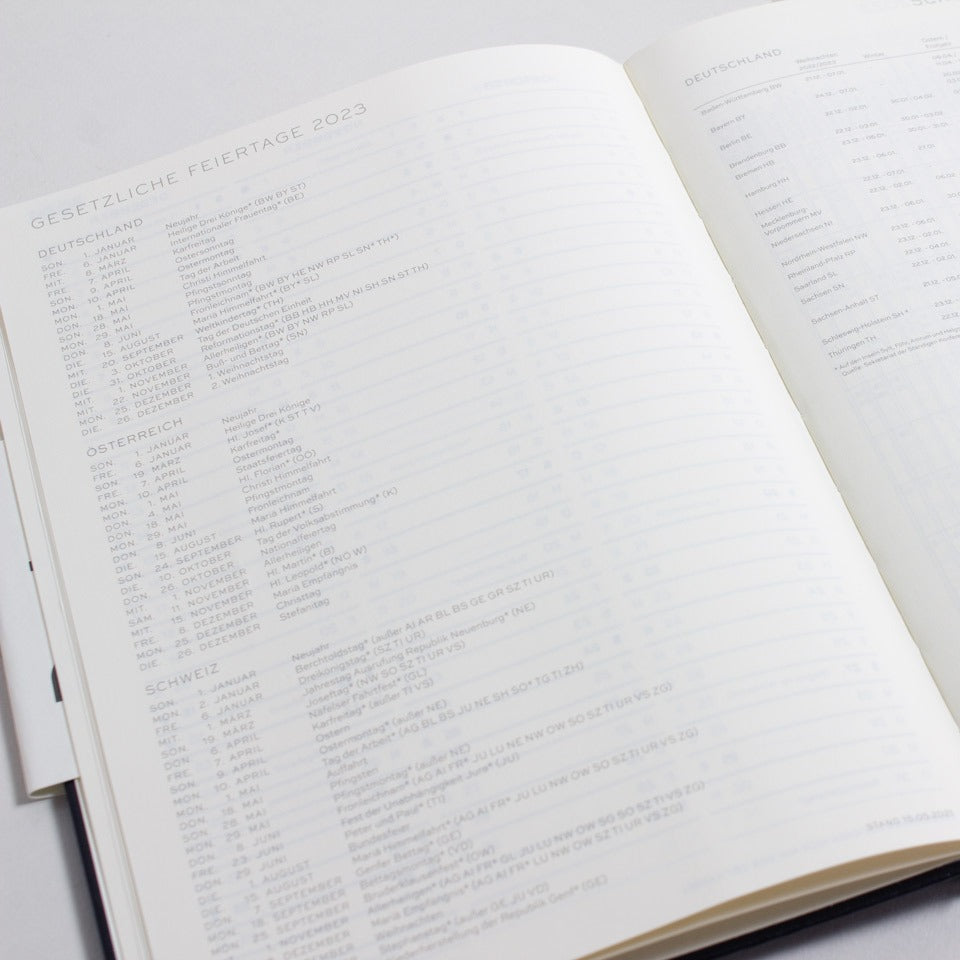 GESETZLICHE FEIERTAGE 2023
DEUTSCHLAND
SON. 1. JANUAR Neujahr
FRE. 6. JANUAR Heilige Drei Könige* (BW BY ST)
8. MÄRZ Internationaler Frauentag* (BE)
FRE. 7. APRIL Karfreitag
SON. 9. APRIL Ostersonntag
MON. 10. APRIL Ostermontag
MON. 1. MAI Tag der Arbeit
DON. 18. MAI Christi Himmelfahrt
SON. 28. MAI Pfingstsonntag
MON. 29. MAI Pfingstmontag
DON. 8. JUNI Fronleichnam* (BW BY HE NW RP SL SN* TH*)
DIE. 15. AUGUST Mariä Himmelfahrt* (BY* SL)
MIT. 20. SEPTEMBER Weltkindertag* (TH)
DIE. 3. OKTOBER Tag der Deutschen Einheit
DIE. 31. OKTOBER Reformationstag* (BB HB HH MV NI SH SN ST TH)
MIT. 1. NOVEMBER Allerheiligen* (BW BY NW RP SL)
MIT. 22. NOVEMBER Buß- und Bettag* (SN)
MON. 25. DEZEMBER 1. Weihnachtstag
DIE. 26. DEZEMBER 2. Weihnachtstag
ÖSTERREICH
SON. 1. JANUAR Neujahr
FRE. 6. JANUAR Heilige Drei Könige
SON. 19. MÄRZ Hl. Josef* (K ST T V)
FRE. 7. APRIL Karfreitag*
MON. 10. APRIL Ostermontag
MON. 1. MAI Staatsfeiertag
DON. 4. MAI Hl. Florian* (OÖ)
DON. 18. MAI Christi Himmelfahrt
MON. 29. MAI Pfingstmontag
DON. 8. JUNI Fronleichnam
DIE. 15. AUGUST Mariä Himmelfahrt
SON. 24. SEPTEMBER Hl. Rupert* (S)
DIE. 10. OKTOBER Tag der Volksabstimmung* (K)
DON. 26. OKTOBER Nationalfeiertag
MIT. 1. NOVEMBER Allerheiligen
SAM. 11. NOVEMBER Hl. Martin* (B)
15. NOVEMBER Hl. Leopold* (NÖ W)
FRE. 8. DEZEMBER Mariä Empfängnis
MON. 25. DEZEMBER Christtag
DIE. 26. DEZEMBER Stefanitag
SCHWEIZ
SON. 1. JANUAR Neujahr
MON. 2. JANUAR Berchtoldstag* (außer AI AR BL BS GE GR SZ TI UR)
6. JANUAR Dreikönigstag* (SZ TI UR)
MIT. 1. MÄRZ Jahrestag Ausrufung Republik Neuenburg* (NE)
SON. 19. MÄRZ Joseftag* (NW SO SZ TI UR VS)
6. APRIL Näfelser Fahrtfest* (GL)
FRE. 7. APRIL Karfreitag* (außer TI VS)
9. APRIL Ostern
MON. 10. APRIL Ostermontag* (außer NE)
MON. 1. MAI Tag der Arbeit* (AG BL BS JU NE SH SO* TG TI ZH)
18. MAI Auffahrt
SON. 28. MAI Pfingsten
MON. 29. MAI Pfingstmontag* (außer NE)
8. JUNI Fronleichnam* (AG AI FR* JU LU NE NW OW SO SZ TI UR VS ZG)
23. JUNI Fest der Unabhängigkeit Jura* (JU)
29. JUNI Peter und Paul* (TI)
1. AUGUST Bundesfeier
AUGUST Mariä Himmelfahrt* (AG AI FR* JU LU NW OW SO SZ TI UR VS ZG)
7. SEPTEMBER Genfer Bettag* (GE)
18. SEPTEMBER Bettagsmontag* (VD)
25. SEPTEMBER Bruderklausenfest* (OW)
1. NOVEMBER Allerheiligen* (AG AI FR* GL JU LU NW OW SO SG SZ TI VS ZG)
DEZEMBER Mariä Empfängnis* (AG AI FR* LU NW OW SZ TI UR VS ZG)
DEZEMBER Weihnachten
Stephanstag* (außer GE JU VD)
Wiederherstellung der Republik Genf* (GE)
STAND 15.05.2021
DEUTSCHLAND Weihnachten 2022/2023 Winter Ostern / Frühjahr
Baden-Württemberg BW
Bayern BY
Berlin BE
Brandenburg BB
Bremen HB
Hamburg HH
Hessen HE
Mecklenburg-
Vorpommern MV
Niedersachsen NI
Nordrhein-Westfalen NW
Rheinland-Pfalz RP
Saarland SL
Sachsen SN
Sachsen-Anhalt ST
Schleswig-Holstein SH*
Thüringen TH